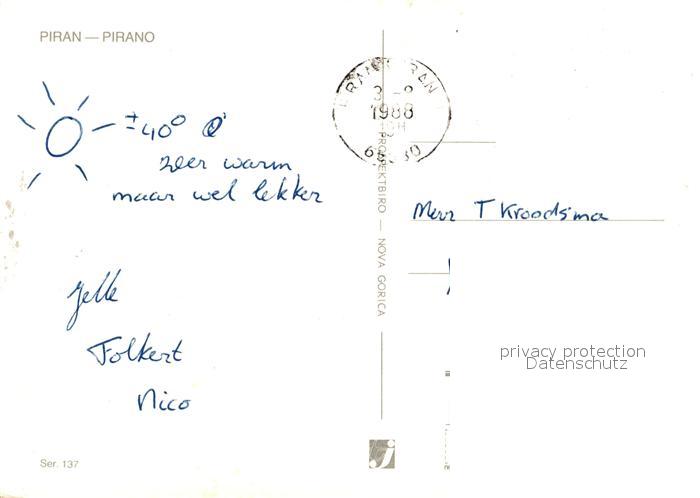 PIRAN — PIRANO
± 40°
zeer warm
maar wel lekker
Jelle
Folkert
Nico
Ser. 137
PROJEKTBIRO — NOVA GORICA
1988
T Kroodsma
privacy protection
Datenschutz